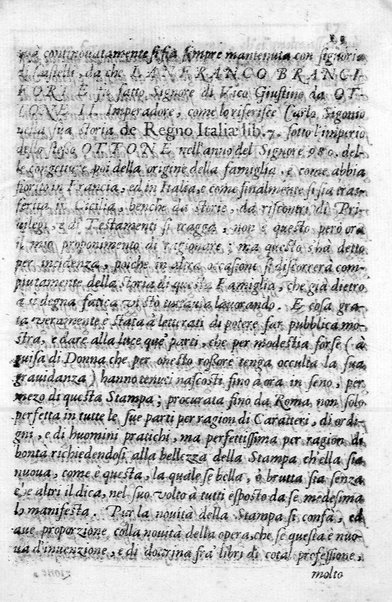 continouatamente si sia sempre mantenuta con signoria
di castelli, da che LANFRANCO BRANCI
FORTE fu fatto Signore di Vico Giustino da OT
TONE II. Imperadore, come lo riferisce Carlo Sigonio
nella sua storia de Regno Italiæ lib. 7. sotto l'imperio
dello stesso OTTONE nell'anno del Signore 980. del-
le congetture poi della origine della famiglia, e come abbia
fiorito in Francia, ed in Italia, e come finalmente si sia tras-
ferita in Cicilia, benche da storie, da riscontri di Pri-
uilegi, e di Testamenti si tragga, non è questo però ora
il mio proponimento di ragionare; ma questo s'ha detto
per incidenza, poiche in altra occasione si discorrerà com-
piutamente della storia di questa Famiglia, che già dietro
à sì degna fatica lauorando. E cosa gra-
ta veramente è stata à leturati di potere far pubblica mo-
stra, e dare alla luce que' parti, che per modestia forse (à
guisa di Donna che per onesto rossore tenga occulta la sua
grauidanza) hanno tenuti nascosti fino à ora in seno; per
mezo di questa Stampa; procurata fino da Roma, non solo
perfetta in tutte le sue parti per ragion di Caratteri, di ordi-
gni, e di huomini pratichi, ma perfettissima per ragion di
bontà richiedendosi alla bellezza della Stampa ch'ella sia
nuoua, come è questa, la quale se bella, o brutta sia senza
ch'altri il dica, nel suo volto à tutti esposto da se medesima
lo manifesta. Per la nouità della Stampa si confà, ed
aue proporzione colla nouità della opera, che se questa è nuo-
ua d'inuenzione, e di dottrina fra' libri di cotal professione,
molto